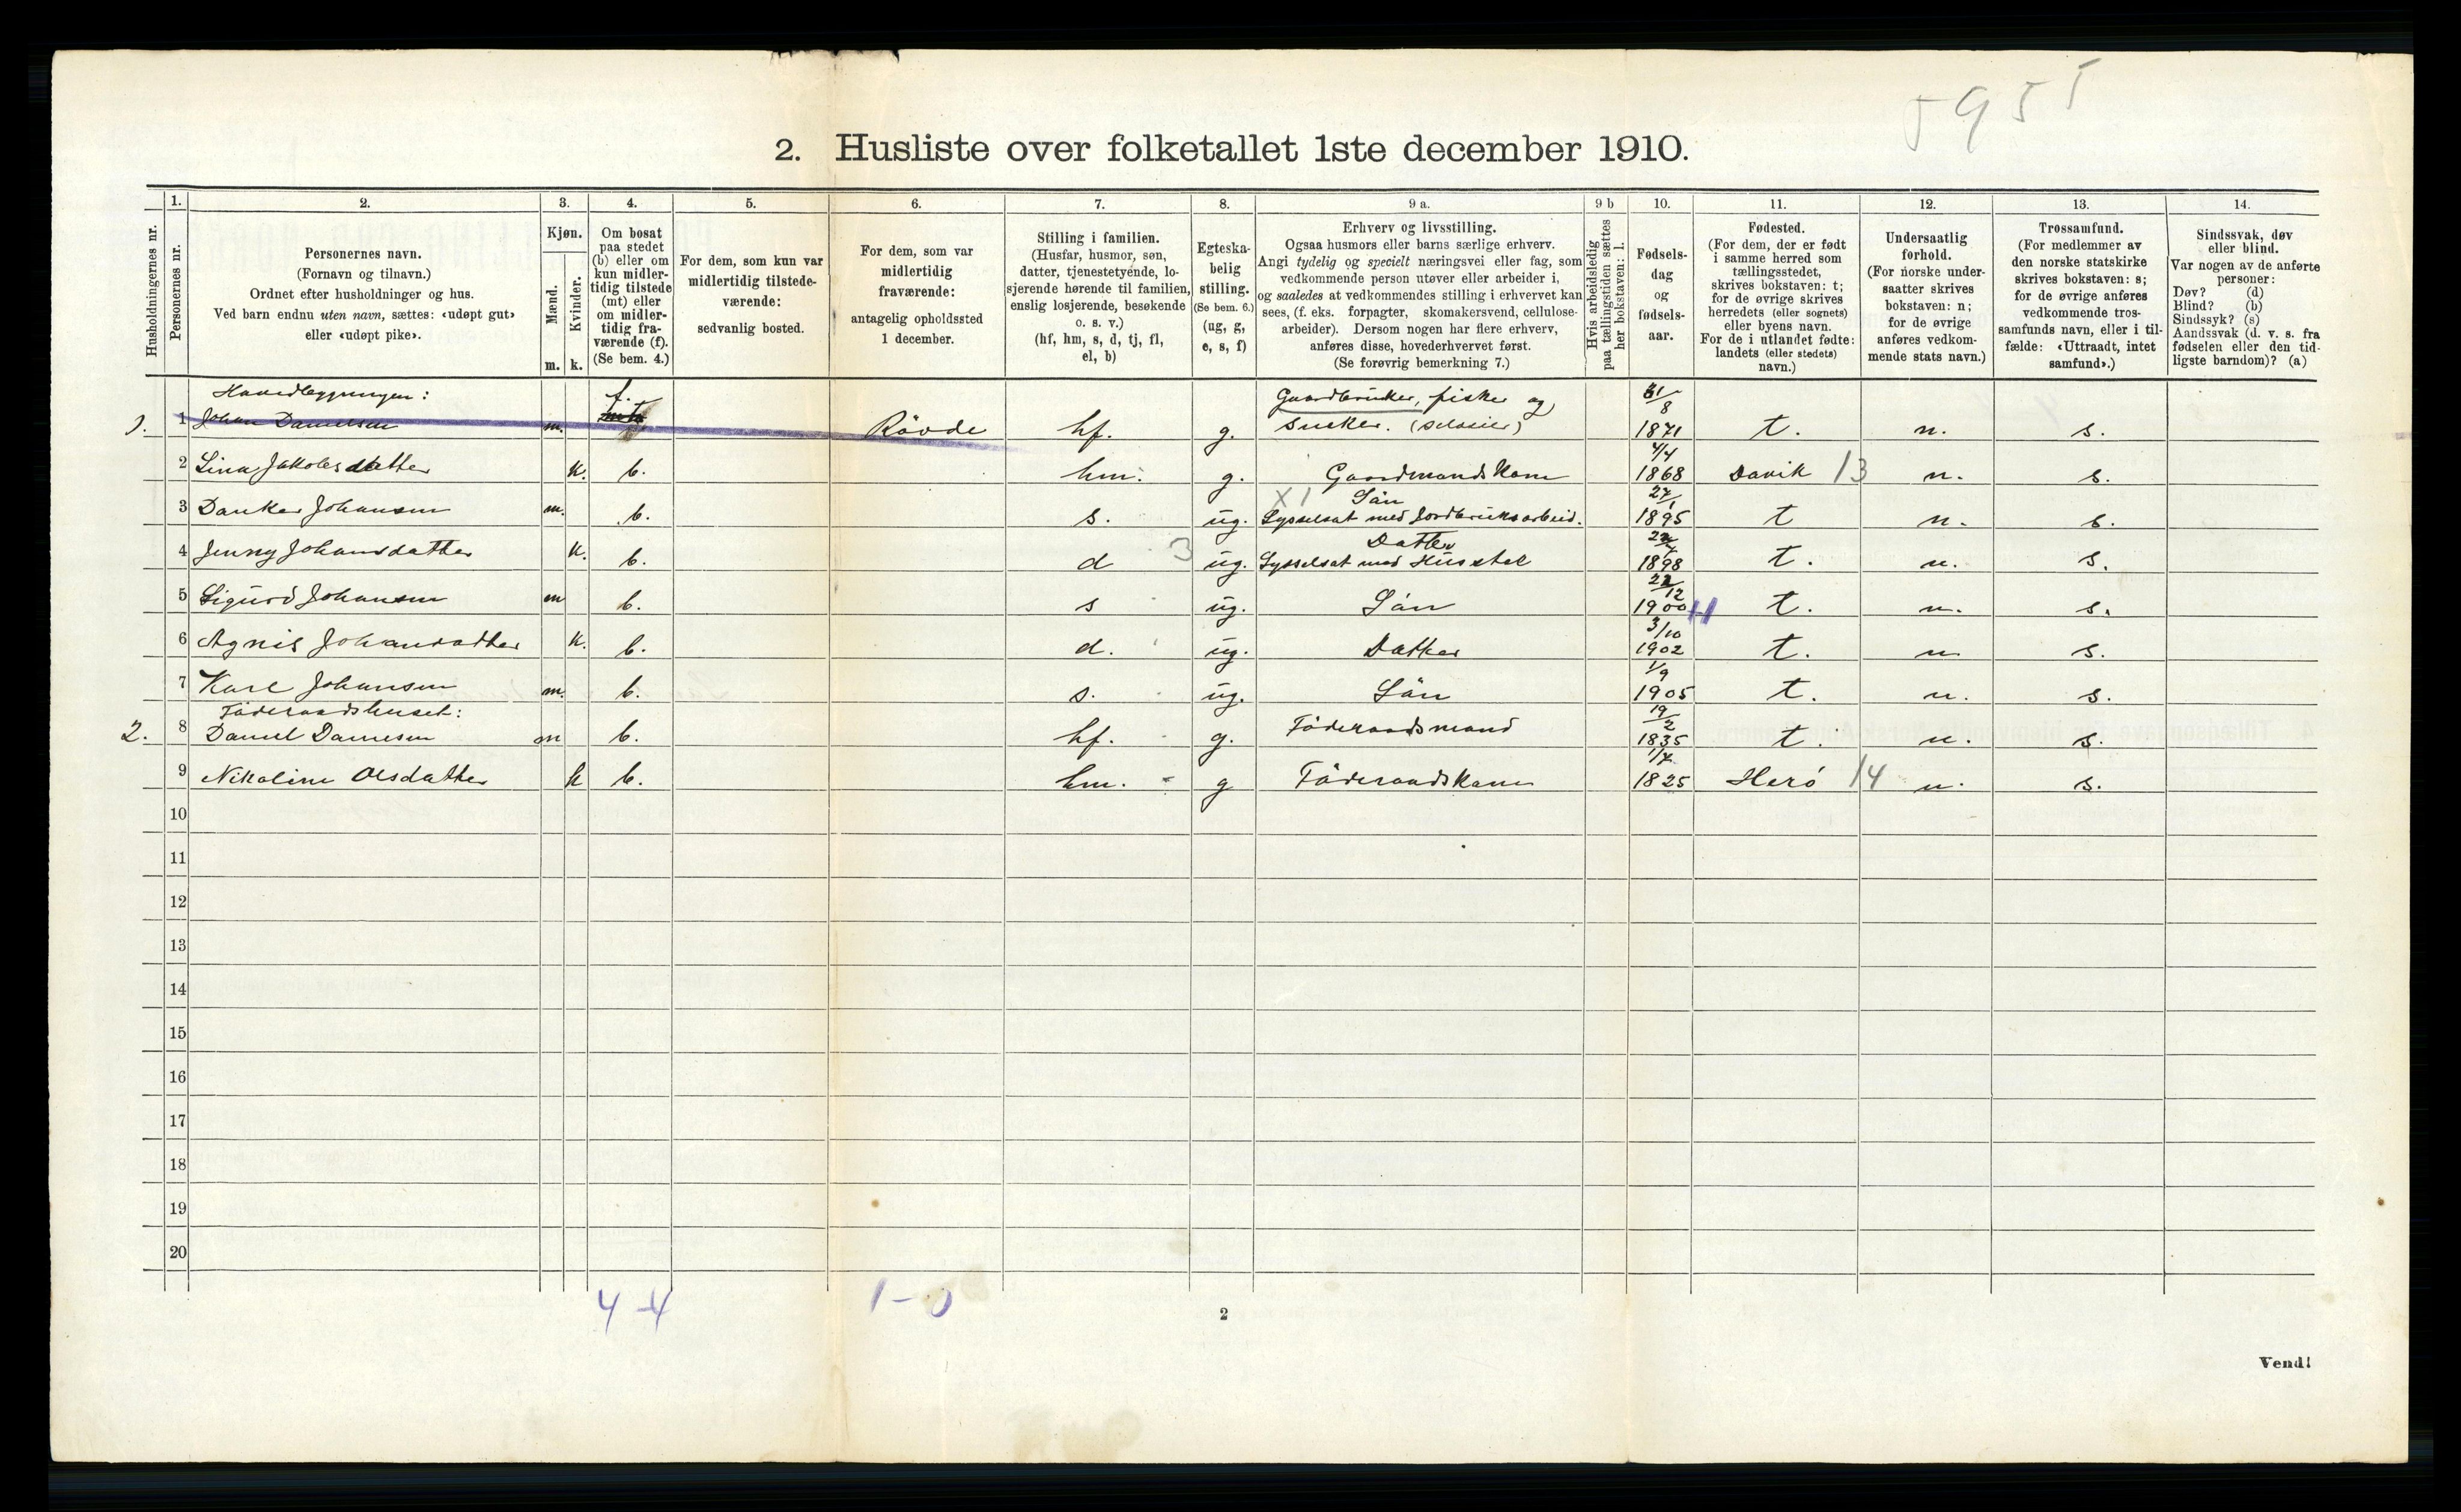 5955
2. Husliste over folketallet 1ste december 1910.
Husholdningernes nr.
1. Personernes nr.
2. Personernes navn.
(Fornavn og tilnavn.)
Ordnet efter husholdninger og hus.
Ved barn endnu uten navn, sættes: «udøpt gut»
eller «udøpt pike».
3. Kjøn.
Mænd. m.
Kvinder. k.
4. Om bosat
paa stedet
(b) eller om
kun midler-
tidig tilstede
(mt) eller
om midler-
tidig fra-
værende (f).
(Se bem. 4.)
5. For dem, som kun var
midlertidig tilstede-
værende:
sedvanlig bosted.
6. For dem, som var
midlertidig
fraværende:
antagelig opholdssted
1 december.
7. Stilling i familien.
(Husfar, husmor, søn,
datter, tjenestetyende, lo-
sjerende hørende til familien,
enslig losjerende, besøkende
o. s. v.)
(hf, hm, s, d, tj, fl,
el, b)
8. Egteska-
belig
stilling.
(Se bem. 6.)
(ug, g,
e, s, f)
9 a. Erhverv og livsstilling.
Ogsaa husmors eller barns særlige erhverv.
Angi tydelig og specielt næringsvei eller fag, som
vedkommende person utøver eller arbeider i,
og saaledes at vedkommendes stilling i erhvervet kan
sees, (f. eks. forpagter, skomakersvend, cellulose-
arbeider). Dersom nogen har flere erhverv,
anføres disse, hovederhvervet først.
(Se forøvrig bemerkning 7.)
9 b Hvis arbeidsledig
paa tællingstiden sættes
her bokstaven: l.
10. Fødsels-
dag
og
fødsels-
aar.
11. Fødested.
(For dem, der er født
i samme herred som
tællingsstedet,
skrives bokstaven: t;
for de øvrige skrives
herredets (eller sognets)
eller byens navn.
For de i utlandet fødte:
landets (eller stedets)
navn.)
12. Undersaatlig
forhold.
(For norske under-
saatter skrives
bokstaven: n;
for de øvrige
anføres vedkom-
mende stats navn.)
13. Trossamfund.
(For medlemmer av
den norske statskirke
skrives bokstaven: s;
for de øvrige anføres
vedkommende tros-
samfunds navn, eller i til-
fælde: «Uttraadt, intet
samfund».)
14. Sindssvak, døv
eller blind.
Var nogen av de anførte
personer:
Døv? (d)
Blind? (b)
Sindssyk? (s)
Aandssvak (d. v. s. fra
fødselen eller den tid-
ligste barndom)? (a)
Hovedbygningen:
1. 1 Johan Danielsen m. f. Røvde hf. g. Gaardbruker, fisker og 31/8 1871 t. n. s.
2 Lina Jakobsdatter k. b. hm. g. Gaardmandskone 4/4 1868 Davik 13 n. s.
3 Danker Johansen m. b. s. ug. X 1 Sön Sysselsat med Jordbruksarbeid. 27/1 1895 t n. s.
4 Jenny Johansdatter k. b. d 3 ug. Datter Sysselsat med Husstel 1898 t. n. s.
5 Sigurd Johansen m b. s ug. Sön 22/12 1900 H t. n. s.
6 Agnis Johansdatter k. b. d. ug. Datter 3/10 1902 t. n s.
7 Karl Johansen m. b. s. ug. Sön 1/9 1905 t. n. s.
Föderaadshuset:
2. 8 Daniel Danielsen m b. hf. g. Föderaadsmand 19/2 1835 t. n. s.
9 Nikoline Olsdatter k b. hm. g Föderaadskone 1/7 1825 Herö 14 n. s.
10
11
12
13
14
15
16
17
18
19
20
4-4 1-0
2
Vend!